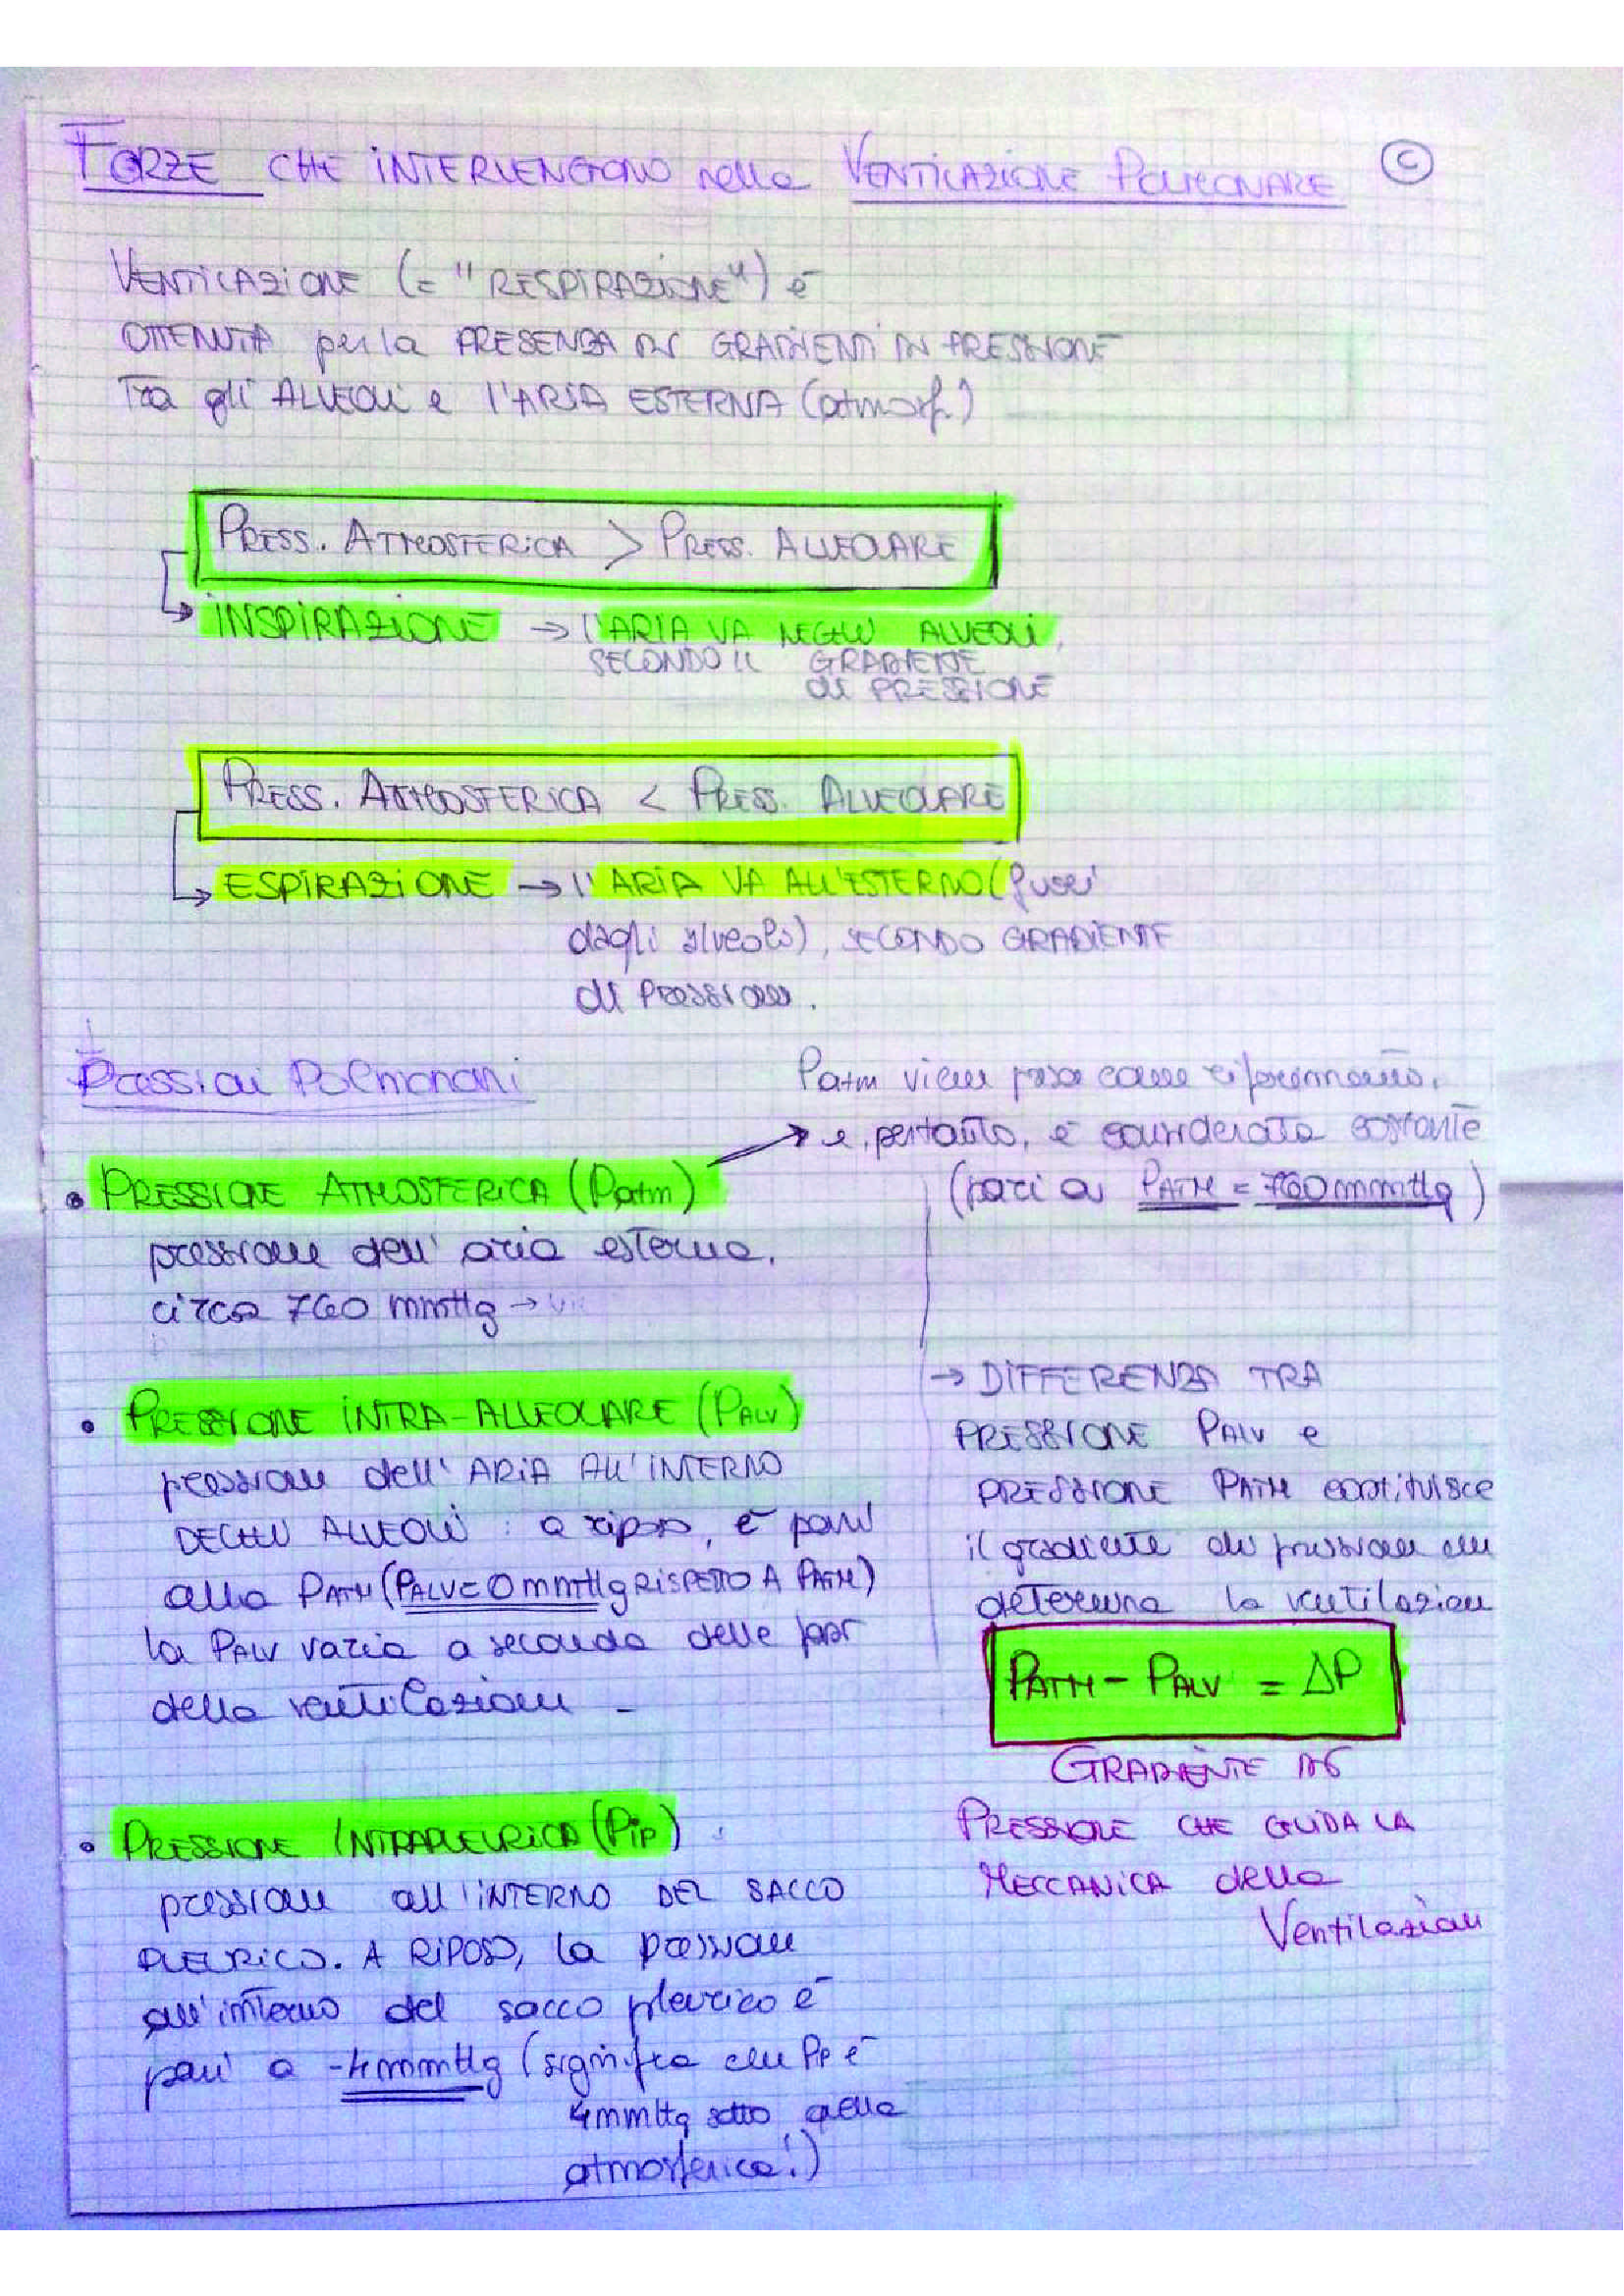 FORZE CHE INTERVENGONO nella VENTILAZIONE POLMONARE
C
VENTILAZIONE (= "RESPIRAZIONE") è
OTTENUTA per la PRESENZA DI GRADIENTI DI PRESSIONE
Tra gli ALVEOLI e l'ARIA ESTERNA (atmosf.)
PRESS. ATMOSFERICA > PRESS. ALVEOLARE
INSPIRAZIONE → l'ARIA VA NEGLI ALVEOLI,
SECONDO IL GRADIENTE
di PRESSIONE
PRESS. ATMOSFERICA < PRESS. ALVEOLARE
ESPIRAZIONE → l'ARIA VA ALL'ESTERNO (fuori
dagli alveoli), SECONDO GRADIENTE
di Pressione.
Pressioni Polmonari
Patm viene presa come riferimento,
e, pertanto, è considerata costante
(pari a PATM = 760 mmHg)
• PRESSIONE ATMOSFERICA (Patm)
pressione dell'aria esterna.
circa 760 mmHg →
• PRESSIONE INTRA-ALVEOLARE (PALV)
pressione dell'ARIA ALL'INTERNO
DEGLI ALVEOLI: a riposo, è pari
alla PATM (PALV = 0 mmHg RISPETTO A PATM)
la PALV varia a seconda delle
della ventilazione
→ DIFFERENZA TRA
PRESSIONE PALV e
PRESSIONE PATM costituisce
il gradiente di pressione che
determina la ventilazione
PATM - PALV = ΔP
GRADIENTE DI
PRESSIONE CHE GUIDA LA
MECCANICA della
Ventilazione
• PRESSIONE INTRAPLEURICA (Pip)
pressione all'INTERNO DEL SACCO
PLEURICO. A RIPOSO, la pressione
all'interno del sacco pleurico è
pari a -4 mmHg (significa che Pip è
4 mmHg sotto quella
atmosferica!)